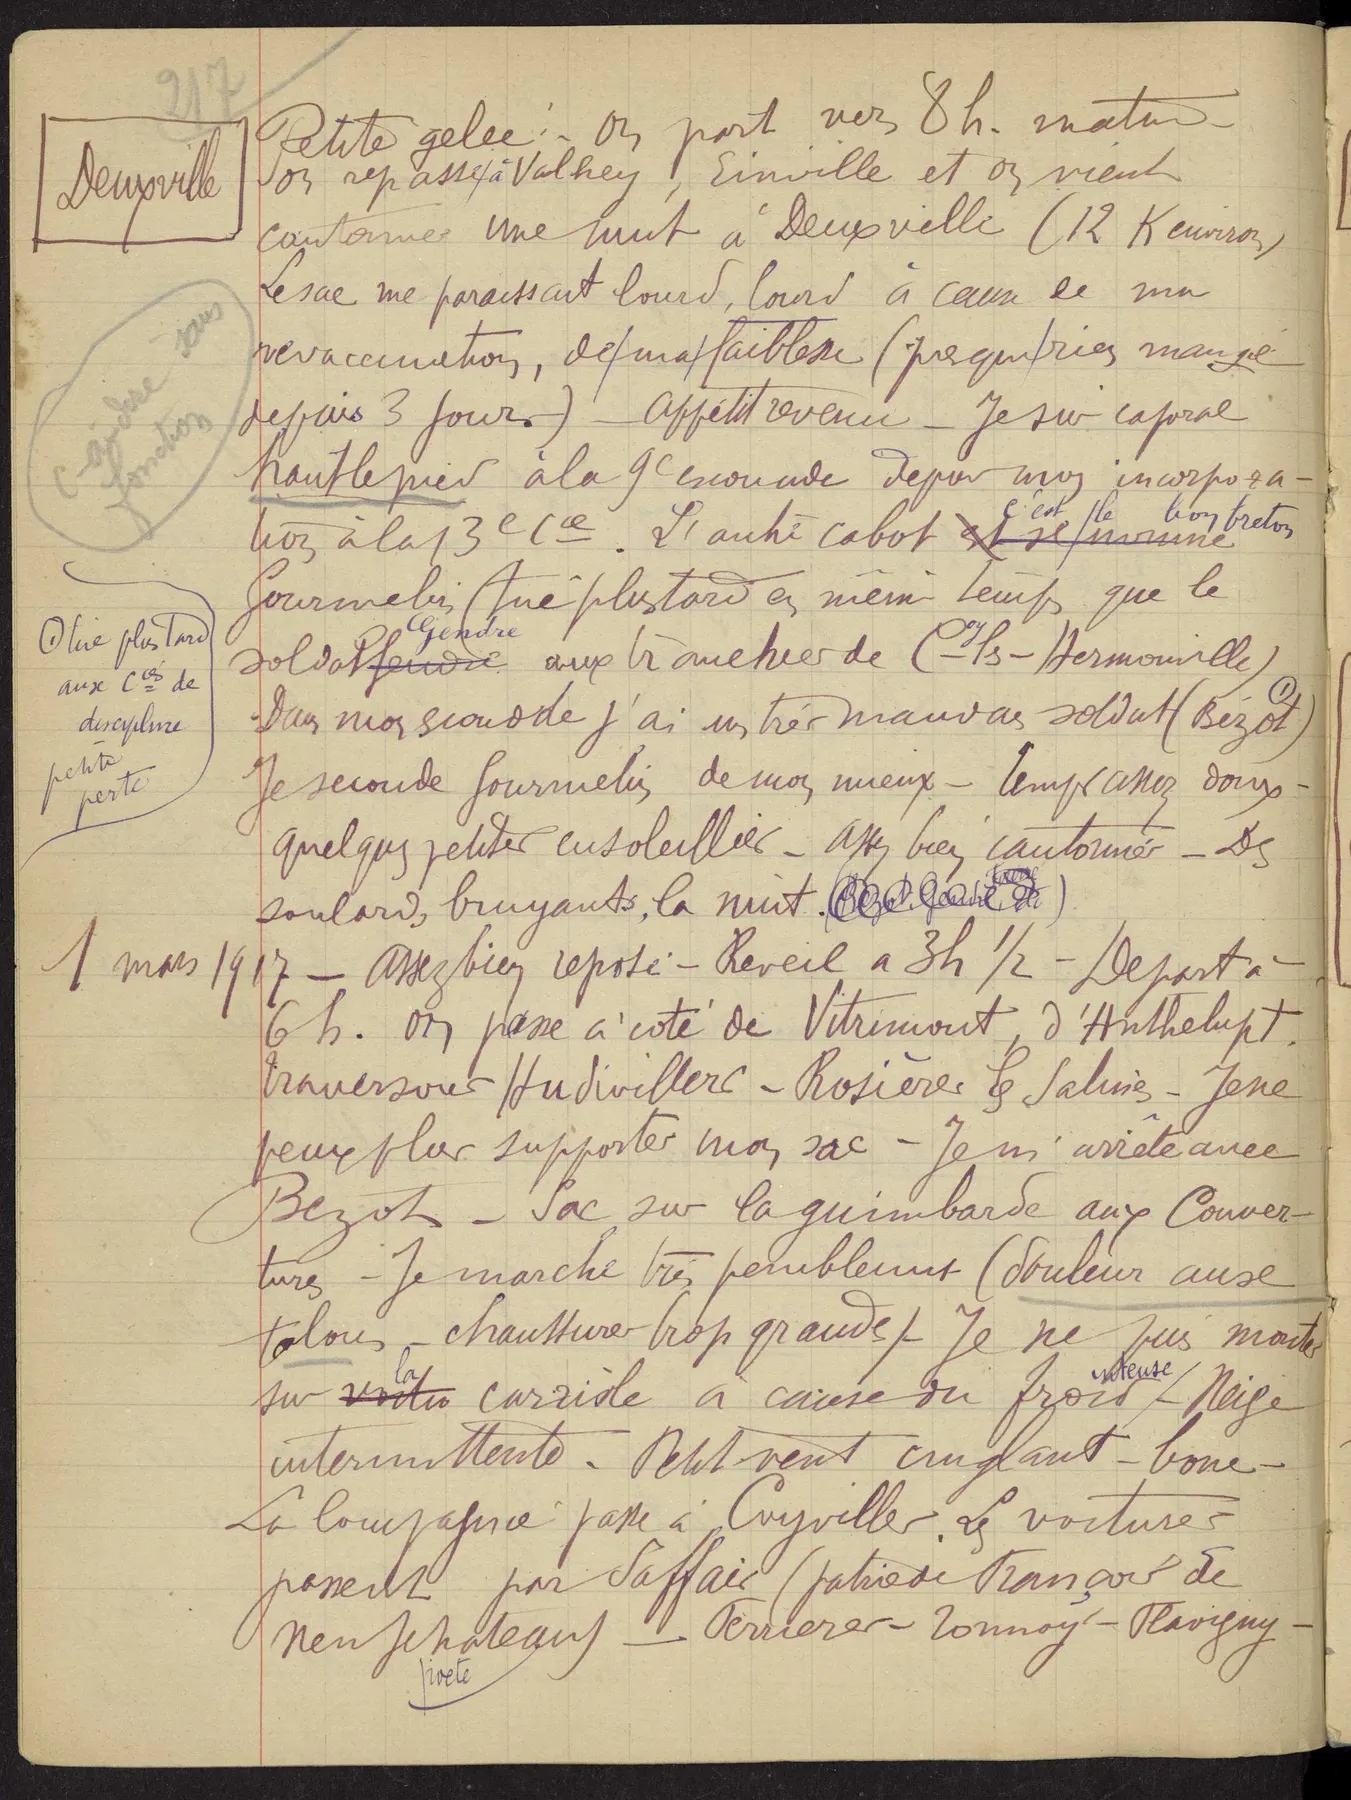 217
Deuxville
Petite gelée. - On part vers 8 h. matin -
on repasse à Valhey, Einville et on vient
cantonner une nuit à Deuxville (12 K environ)
Le sac me paraissait lourd, lourd à cause de ma
revaccination, de ma faiblesse (presque rien mangé
depuis 3 jours) - Appétit revenu - Je suis caporal
haut le pied à la 9e escouade depuis mon incorpora-
tion à la 13e Cie. L'autre cabot est se nomme c'est le bon breton
Gourmelin (tué plus tard en même temps que le
soldat Gendre aux tranchées de Hermonville)
Dans mon escouade j'ai un très mauvais soldat (Bézot) ①
Je seconde Gourmelin de mon mieux - Temps assez doux -
quelques petites ensoleillées - Assez bien cantonnés - Des
soulards, bruyants, la nuit.
c-à-dire sans
fonction
① tué plus tard
aux Cies de
discipline
petite
perte
1 mars 1917 - Assez bien reposé - Réveil à 3h 1/2 - Départ à
6 h. On passe à côté de Vitrimont, d'Anthelupt.
traversons Hudiviller - Rosières les Salines - Je ne
peux plus supporter mon sac - Je m'arrête avec
Bezot - Sac sur la guimbarde aux Couver-
tures - Je marche très péniblement (douleur aux
talons - chaussures trop grandes) - Je ne puis monter
sur la carriole à cause du froid intense - Neige
intermittente - Petit vent cinglant - boue -
La Compagnie passe à Coyviller. Les voitures
passent par Saffais (patrie de François de
Neufchateau) - Ferrières - Tonnoy - Flavigny -
poète